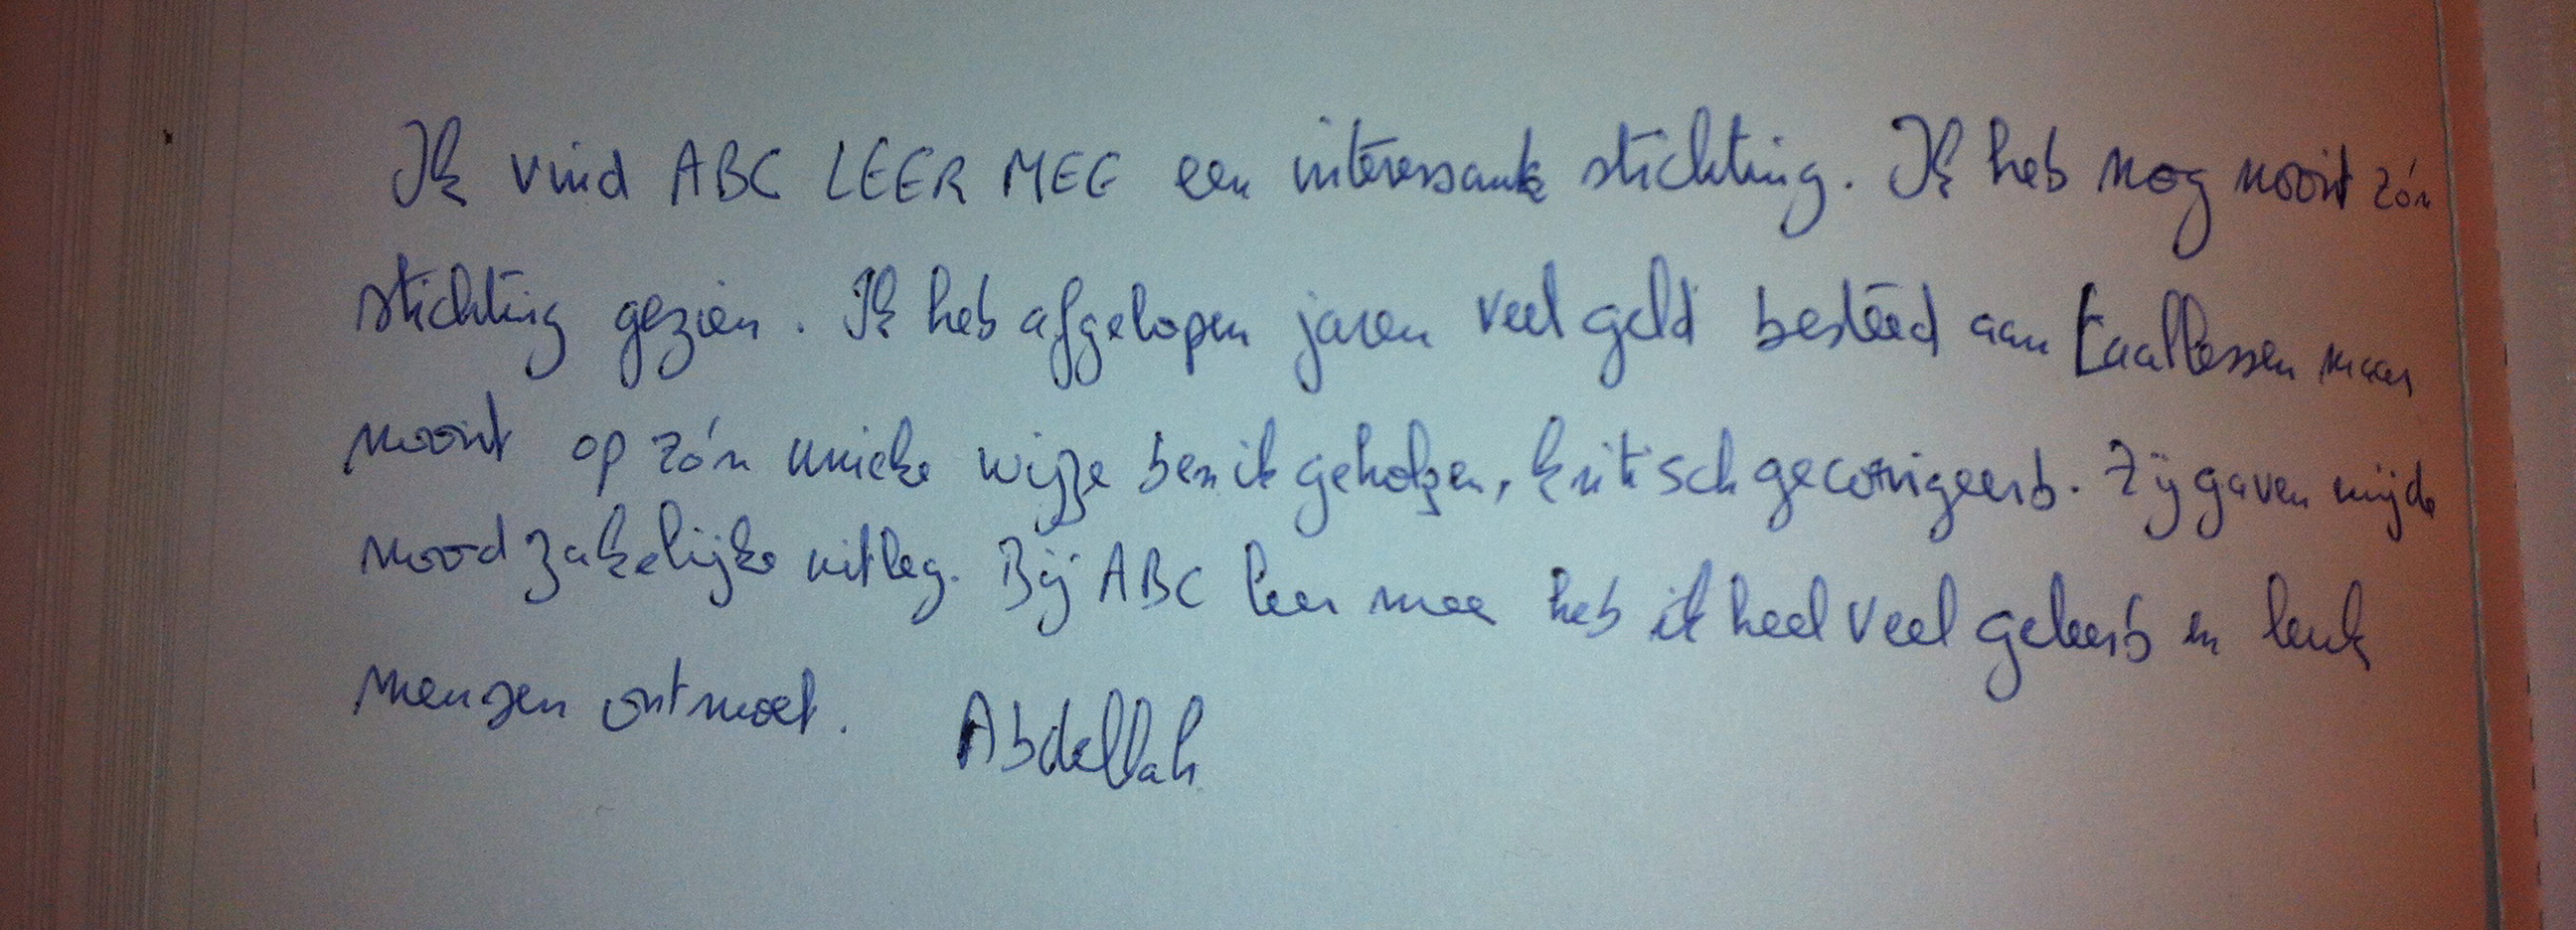 Ik vind ABC LEER MEE een interessante stichting. Ik heb nog nooit zó'n
stichting gezien. Ik heb afgelopen jaren veel geld besteed aan taallessen maar
nooit op zó'n unieke wijze ben ik geholpen, kritisch gecorrigeerd. Zij gaven mij de
noodzakelijke uitleg. Bij ABC leer mee heb ik heel veel geleerd en leuk
mensen ontmoet. Abdellah